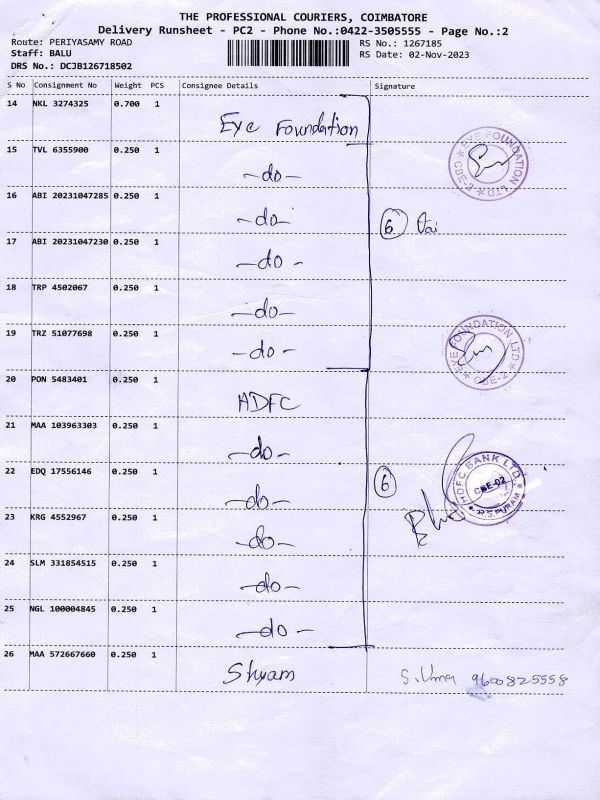 THE PROFESSIONAL COURIERS, COIMBATORE
Delivery Runsheet - PC2 - Phone No.:0422-3505555 - Page No.:2
Route: PERIYASAMY ROAD
RS No.: 1267185
Staff: BALU
RS Date: 02-Nov-2023
DRS No.: DCJB126718502
S No Consignment No Weight PCS Consignee Details Signature
14 NKL 3274325 0.700 1
Eye Foundation
15 TVL 6355900 0.250 1
-do-
EYE FOUNDATION LTD CBE-2
16 ABI 20231047285 0.250 1
-do-
6
17 ABI 20231047230 0.250 1
-do-
18 TRP 4502067 0.250 1
-do-
19 TRZ 51077698 0.250 1
-do-
EYE FOUNDATION LTD CBE-2
20 PON 5483401 0.250 1
HDFC
21 MAA 103963303 0.250 1
-do-
22 EDQ 17556146 0.250 1
-do-
6
HDFC BANK LTD CBE-02 R.S.PURAM
23 KRG 4552967 0.250 1
-do-
24 SLM 331854515 0.250 1
-do-
25 NGL 100004845 0.250 1
-do-
26 MAA 572667660 0.250 1
Shyam
9600825558